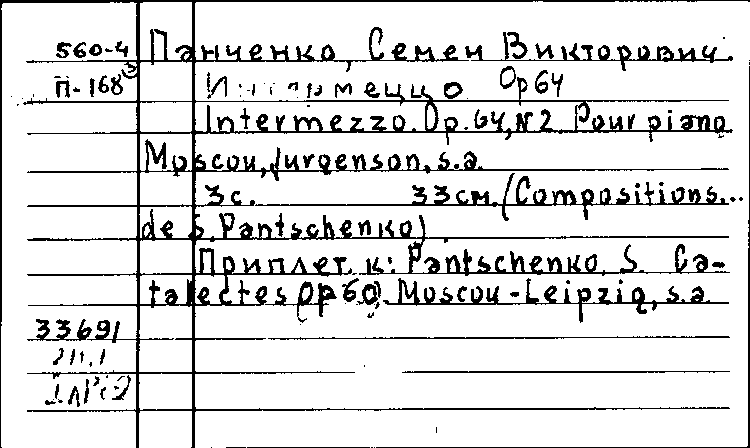 560-4 Панченко, Семен Викторович.
П-168 Интермеццо Op 64
Intermezzo. Op. 64, N2 Pour piano
Moscou, Jurgenson, s.a.
3с. 33см. (Compositions...
de S. Pantschenko)
Приплет. к: Pantschenko, S. Ca-
talectes (Op 60). Moscou-Leipzig, s.a.
33691